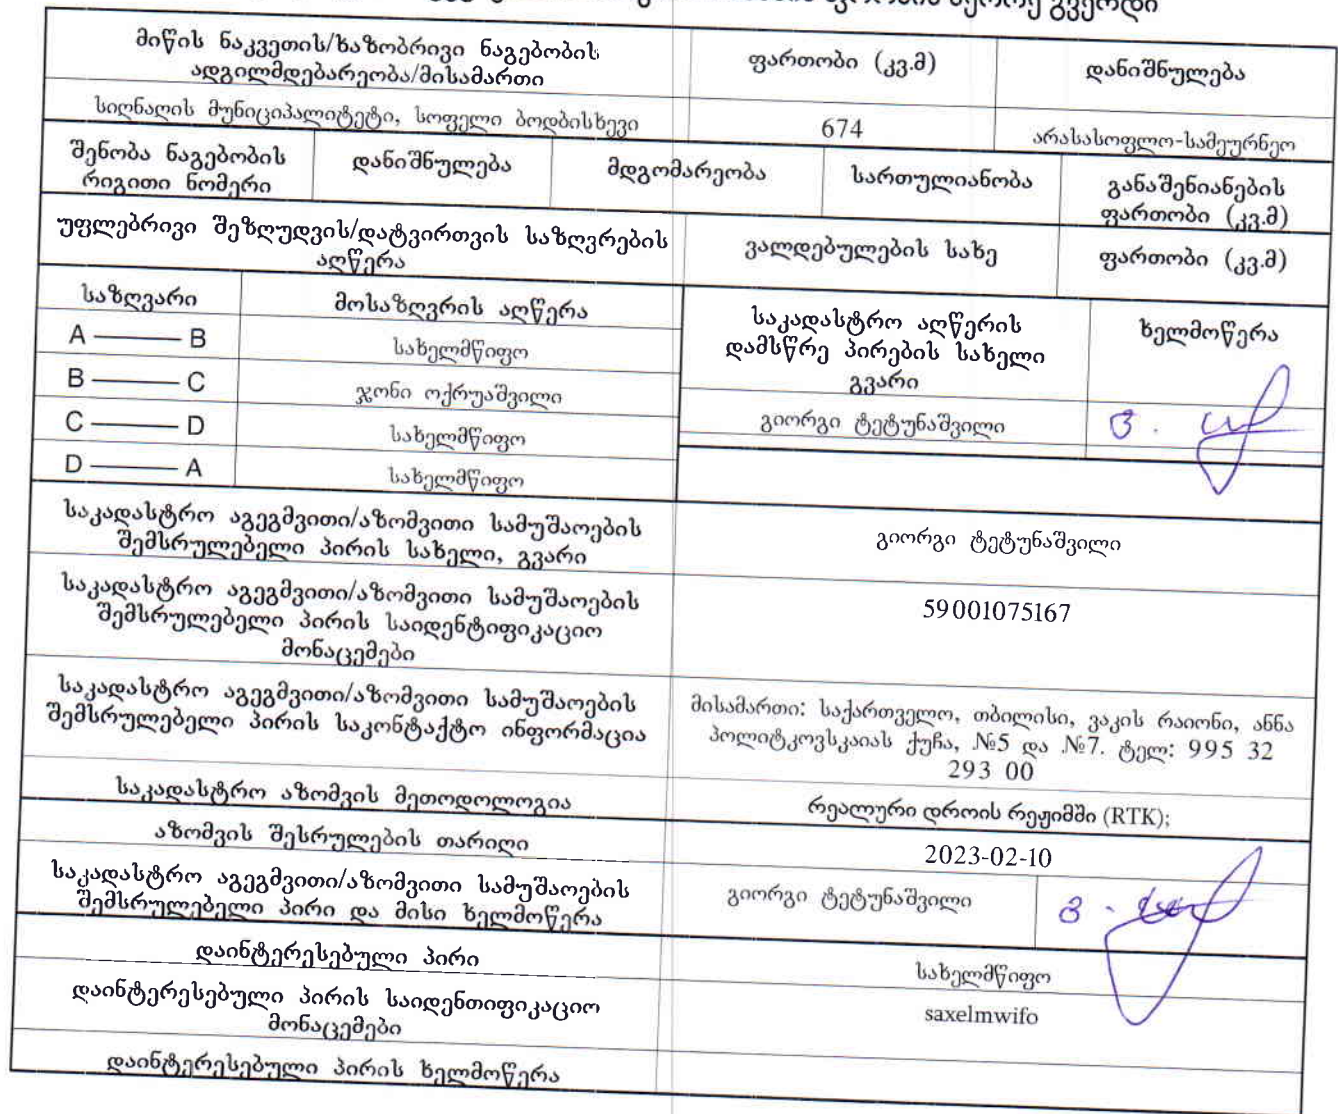 მიწის ნაკვეთის/ხაზობრივი ნაგებობის
ადგილმდებარეობა/მისამართი
ფართობი (კვ.მ)
დანიშნულება
სიღნაღის მუნიციპალიტეტი, სოფელი ბოდბისხევი
674
არასასოფლო-სამეურნეო
შენობა ნაგებობის
რიგითი ნომერი
დანიშნულება
მდგომარეობა
სართულიანობა
განაშენიანების
ფართობი (კვ.მ)
უფლებრივი შეზღუდვის/დატვირთვის საზღვრების
აღწერა
ვალდებულების სახე
ფართობი (კვ.მ)
საზღვარი
მოსაზღვრის აღწერა
A ——— B
სახელმწიფო
B ——— C
ჯონი ოქრუაშვილი
C ——— D
სახელმწიფო
D ——— A
სახელმწიფო
საკადასტრო აღწერის
დამსწრე პირების სახელი
გვარი
ხელმოწერა
გიორგი ტეტუნაშვილი
საკადასტრო აგეგმვითი/აზომვითი სამუშაოების
შემსრულებელი პირის სახელი, გვარი
გიორგი ტეტუნაშვილი
საკადასტრო აგეგმვითი/აზომვითი სამუშაოების
შემსრულებელი პირის საიდენტიფიკაციო
მონაცემები
59001075167
საკადასტრო აგეგმვითი/აზომვითი სამუშაოების
შემსრულებელი პირის საკონტაქტო ინფორმაცია
მისამართი: საქართველო, თბილისი, ვაკის რაიონი, ანნა
პოლიტკოვსკაიას ქუჩა, №5 და №7. ტელ: 995 32
293 00
საკადასტრო აზომვის მეთოდოლოგია
რეალური დროის რეჟიმში (RTK);
აზომვის შესრულების თარიღი
2023-02-10
საკადასტრო აგეგმვითი/აზომვითი სამუშაოების
შემსრულებელი პირი და მისი ხელმოწერა
გიორგი ტეტუნაშვილი
დაინტერესებული პირი
სახელმწიფო
დაინტერესებული პირის საიდენთიფიკაციო
მონაცემები
saxelmwifo
დაინტერესებული პირის ხელმოწერა